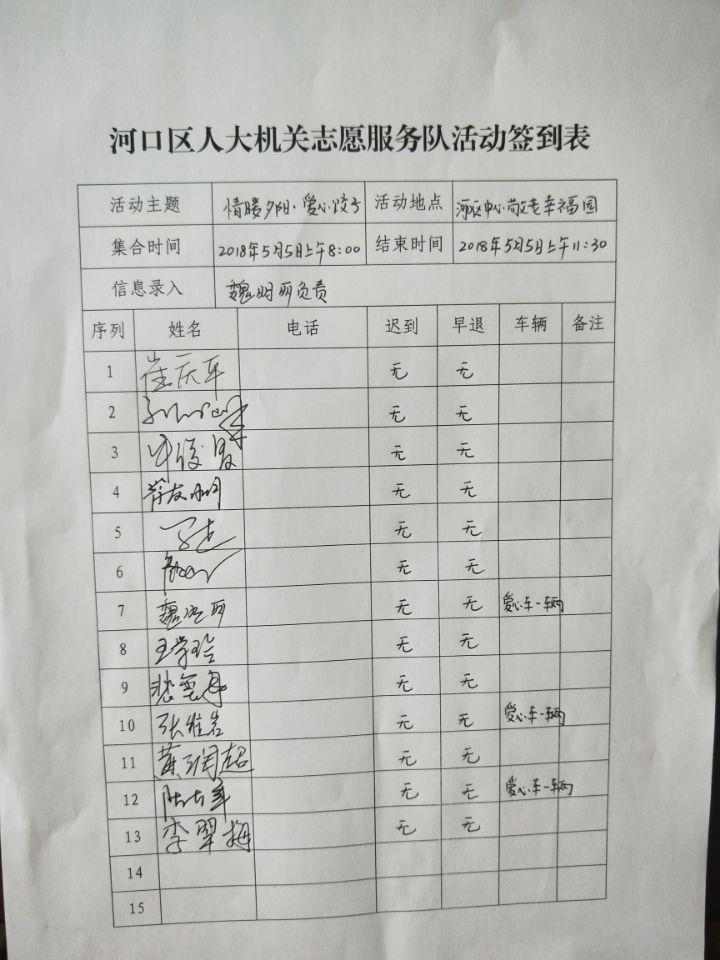 河口区人大机关志愿服务队活动签到表
活动主题 情暖夕阳·爱心饺子 活动地点 河口区中心敬老幸福园
集合时间 2018年5月5日上午8:00 结束时间 2018年5月5日上午11:30
信息录入 魏明丽负责
序列 姓名 电话 迟到 早退 车辆 备注
1 崔庆军 无 无
2 无 无
3 无 无
4 无 无
5 无 无
6 无 无
7 魏明丽 无 无 爱心车一辆
8 王学玲 无 无
9 无 无
10 张维岩 无 无 爱心车一辆
11 黄润超 无 无
12 无 无 爱心车一辆
13 李翠梅 无 无
14
15